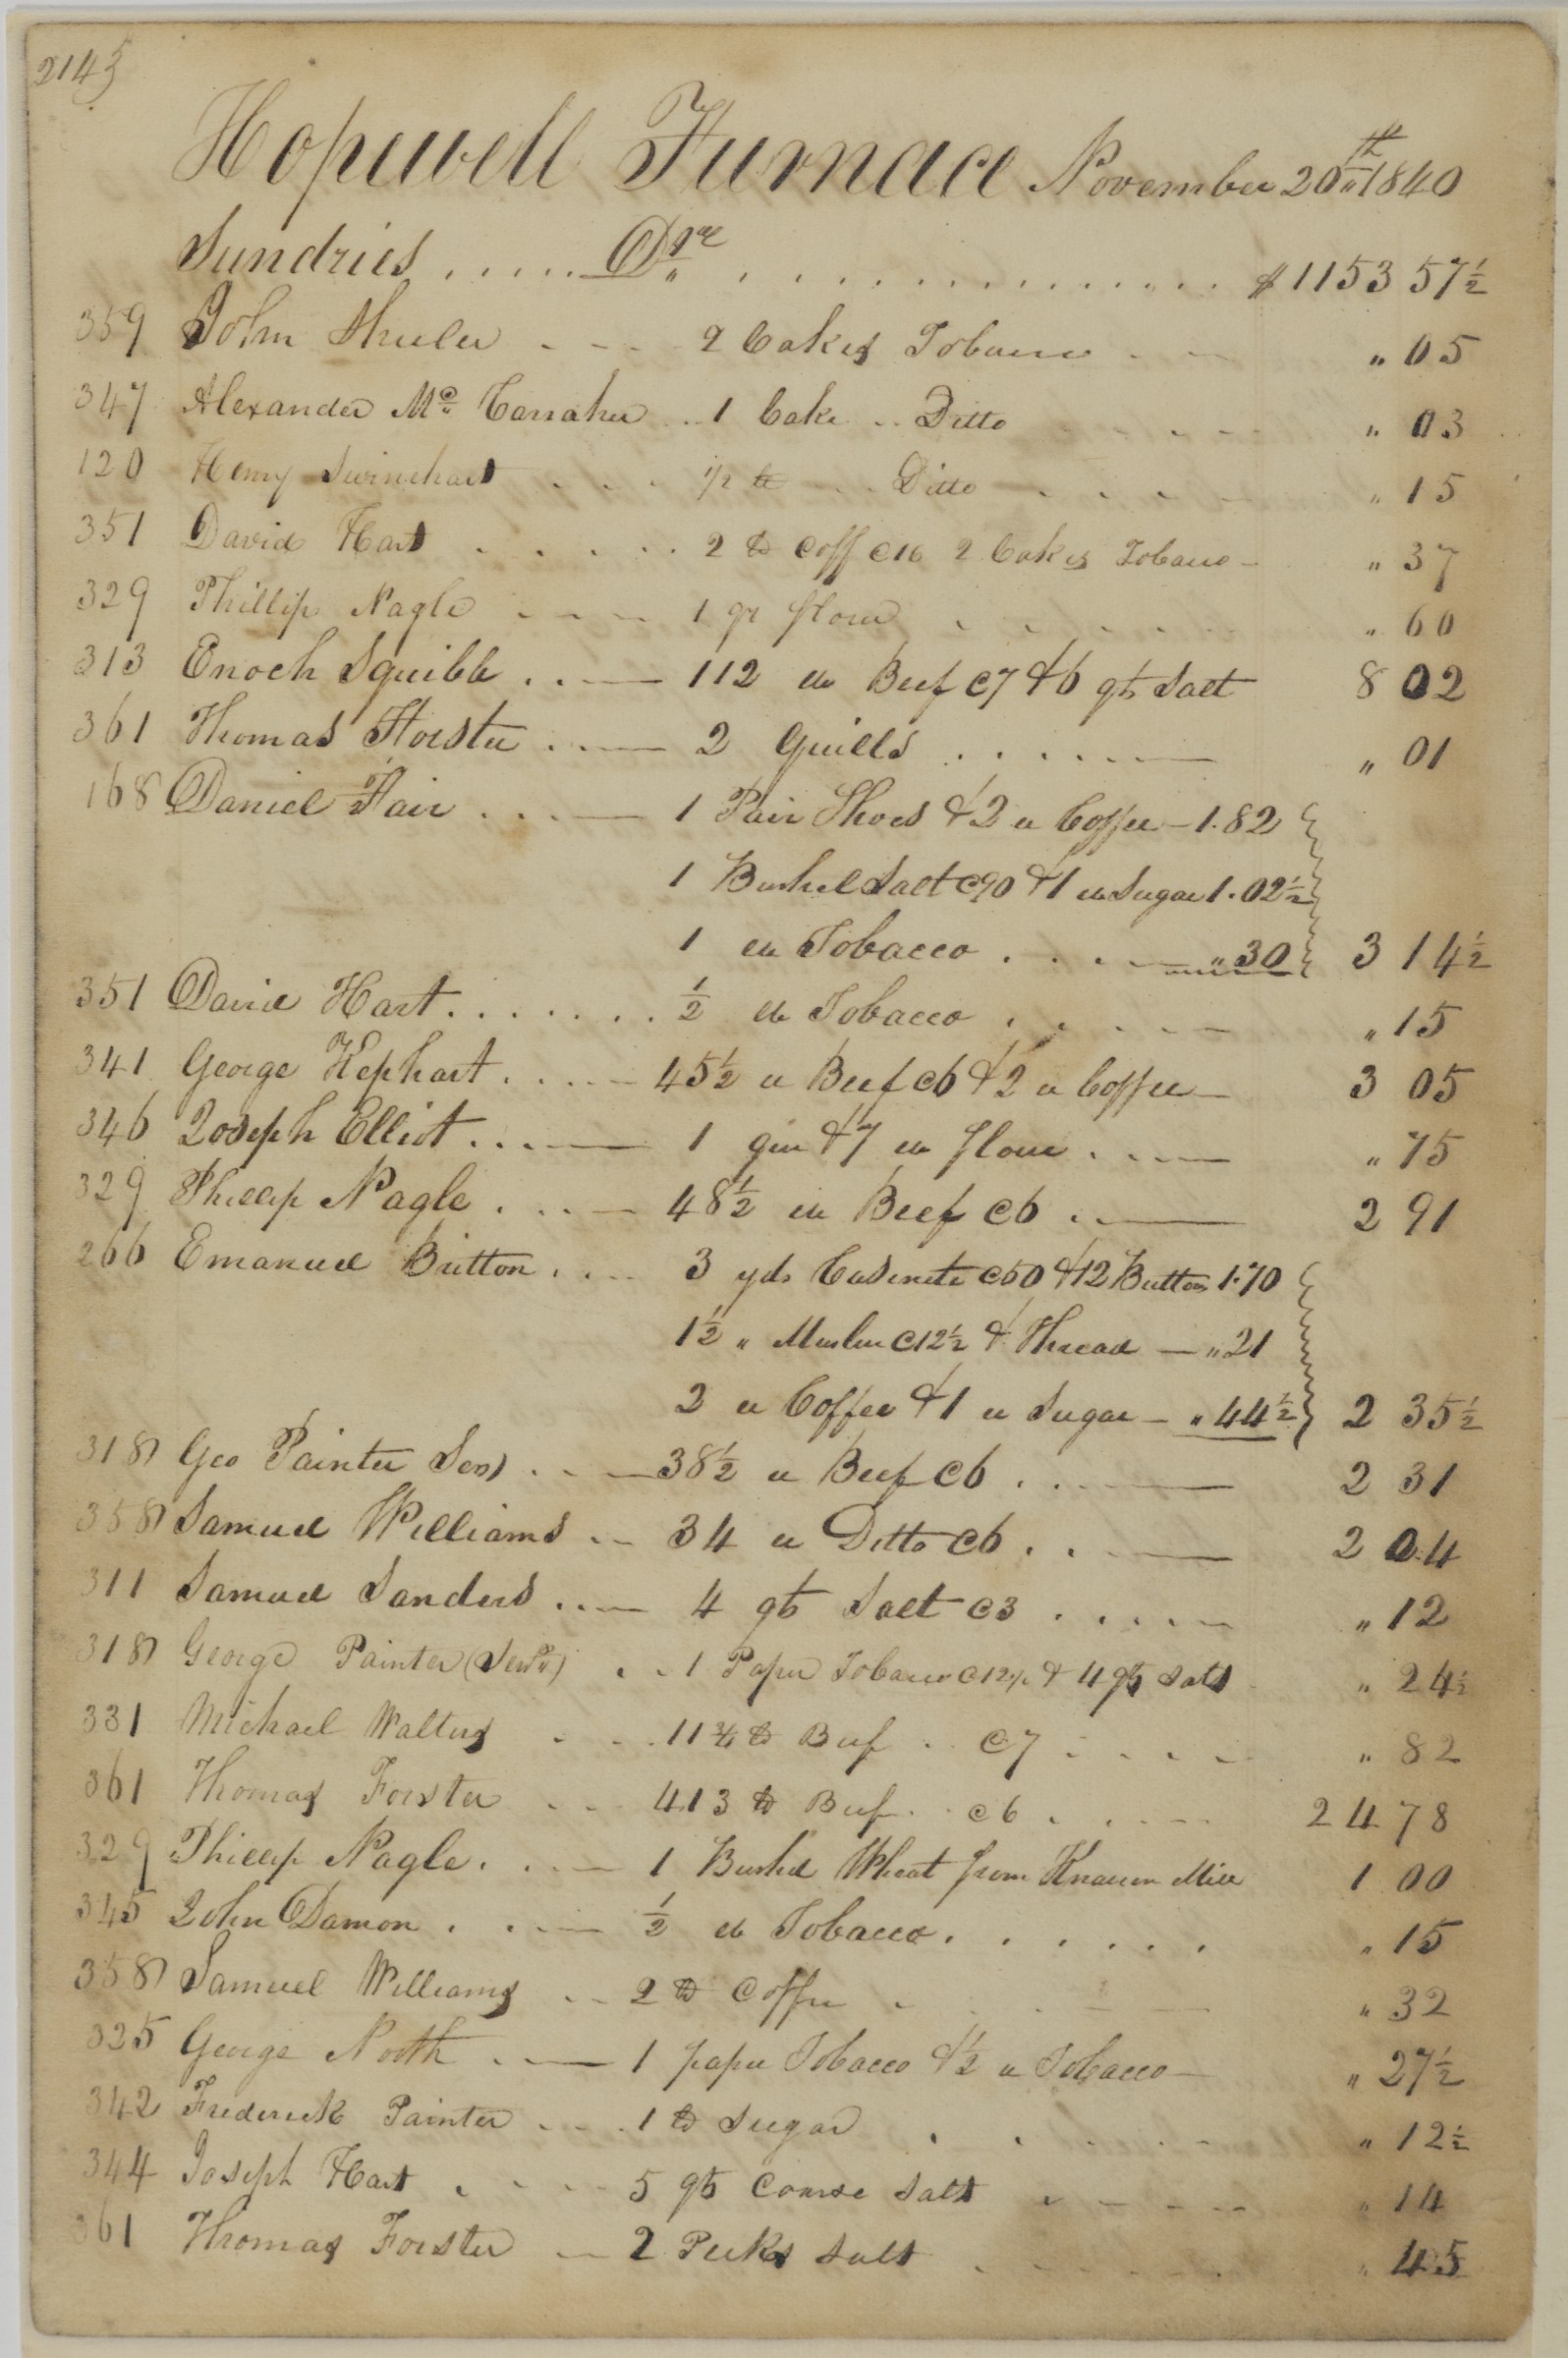 2145
Hopewell Furnace November 20th 1840
Sundries ..... Drs ............... $1153 57½
359 John Shuler - - - 2 Cakes Tobacco - - " 05
347 Alexander Mc Carraher .. 1 Cake .. Ditto - - - " 03
120 Henry Swinehart . . . 1/2 lb . . Ditto - . . . - " 15
351 David Hart . . . . . 2 lb Coff C16 2 Cakes Tobacco - " 37
329 Phillip Nagle - - - - 1 qr flour . . . . . " 60
313 Enoch Squibb . . — 112 lb Beef C7 & 6 qts Salt 8 02
361 Thomas Forster . . — 2 Quills . . . . . — " 01
168 Daniel Fair . . . — 1 Pair Shoes & 2 lb Coffee — 1.82
1 Bushel Salt C90 & 1 lb Sugar 1.02½
1 lb Tobacco . . . . — " 30 3 14½
351 David Hart . . . . . . . ½ lb Tobacco . . . . — " 15
341 George Kephart . . . . - 45½ lb Beef C6 & 2 lb Coffee — 3 05
346 Joseph Elliot . . . — 1 qur & 7 lb flour . . . — " 75
329 Phillip Nagle . . . . — 48½ lb Beef C6 . . — 2 91
266 Emanuel Britton . . . . 3 yds Casinete C50 & 12 Buttons 1.70
1½ " Muslin C12½ & Thread — " 21
2 lb Coffee & 1 lb Sugar — " 44½ 2 35½
318 Geo Painter Senr . . — 38½ lb Beef C6 . . . — 2 31
358 Samuel Williams . . - 34 lb Ditto C6 . . . — 2 04
311 Samuel Sanders . . . — 4 qts Salt C3 . . . . . - " 12
318 George Painter (Senr) . . 1 Paper Tobacco C12½ & 4 qts Salt " 24½
331 Michael Walters . - . 11¾ lb Beef . C7 . . . . " 82
361 Thomas Forster . . - 413 lb Beef . . C6 . . . . - 24 78
329 Phillip Nagle . . . — 1 Bushel Wheat from Knauers Mill 1 00
345 John Damon . . . — ½ lb Tobacco . . . . . . " 15
358 Samuel Williams . . - 2 lb Coffee . . . — " 32
325 George North . . — 1 paper Tobacco & ½ lb Tobacco — " 27½
342 Frederick Painter - - . 1 lb Sugar . . . . - " 12½
344 Joseph Hart . . . - 5 qts Coarse Salt . - - - - " 14
361 Thomas Forster — 2 Pecks Salt . - - - . " 45